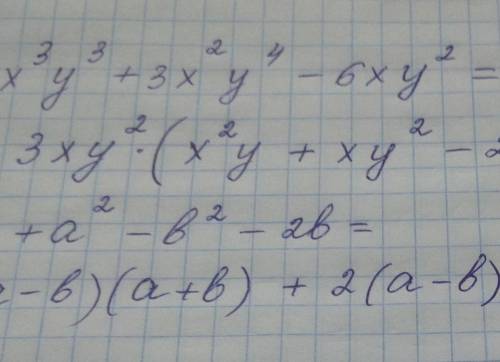 x³y³ + 3x²y⁴ - 6xy² =
3xy² · (x²y + xy² - 2
+ a² - b² - 2b =
- b)(a + b) + 2(a - b)